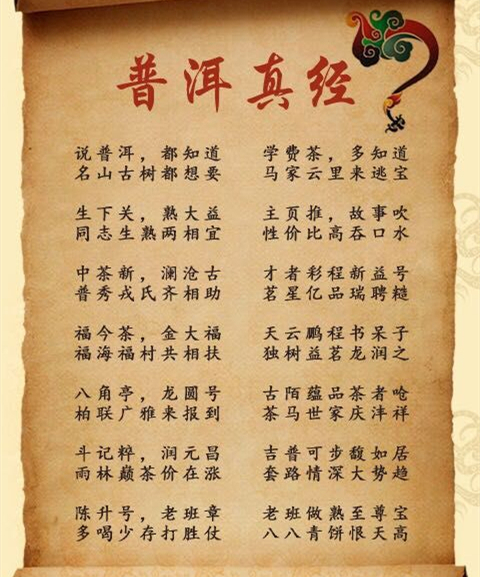 普洱真经
说普洱，都知道
名山古树都想要
生下关，熟大益
同志生熟两相宜
中茶新，澜沧古
普秀戎氏齐相助
福今茶，金大福
福海福村共相扶
八角亭，龙圆号
柏联广雅来报到
斗记粹，润元昌
雨林巅茶价在涨
陈升号，老班章
多喝少存打胜仗
学费茶，多知道
马家云里来逃宝
主页推，故事吹
性价比高吞口水
才者彩程新益号
茗星亿品瑞聘糙
天云鹏程书呆子
独树益茗龙润之
古陌蕴品茶者呛
茶马世家庆沣祥
吉普可步馥如居
套路情深大势趋
老班做熟至尊宝
八八青饼恨天高